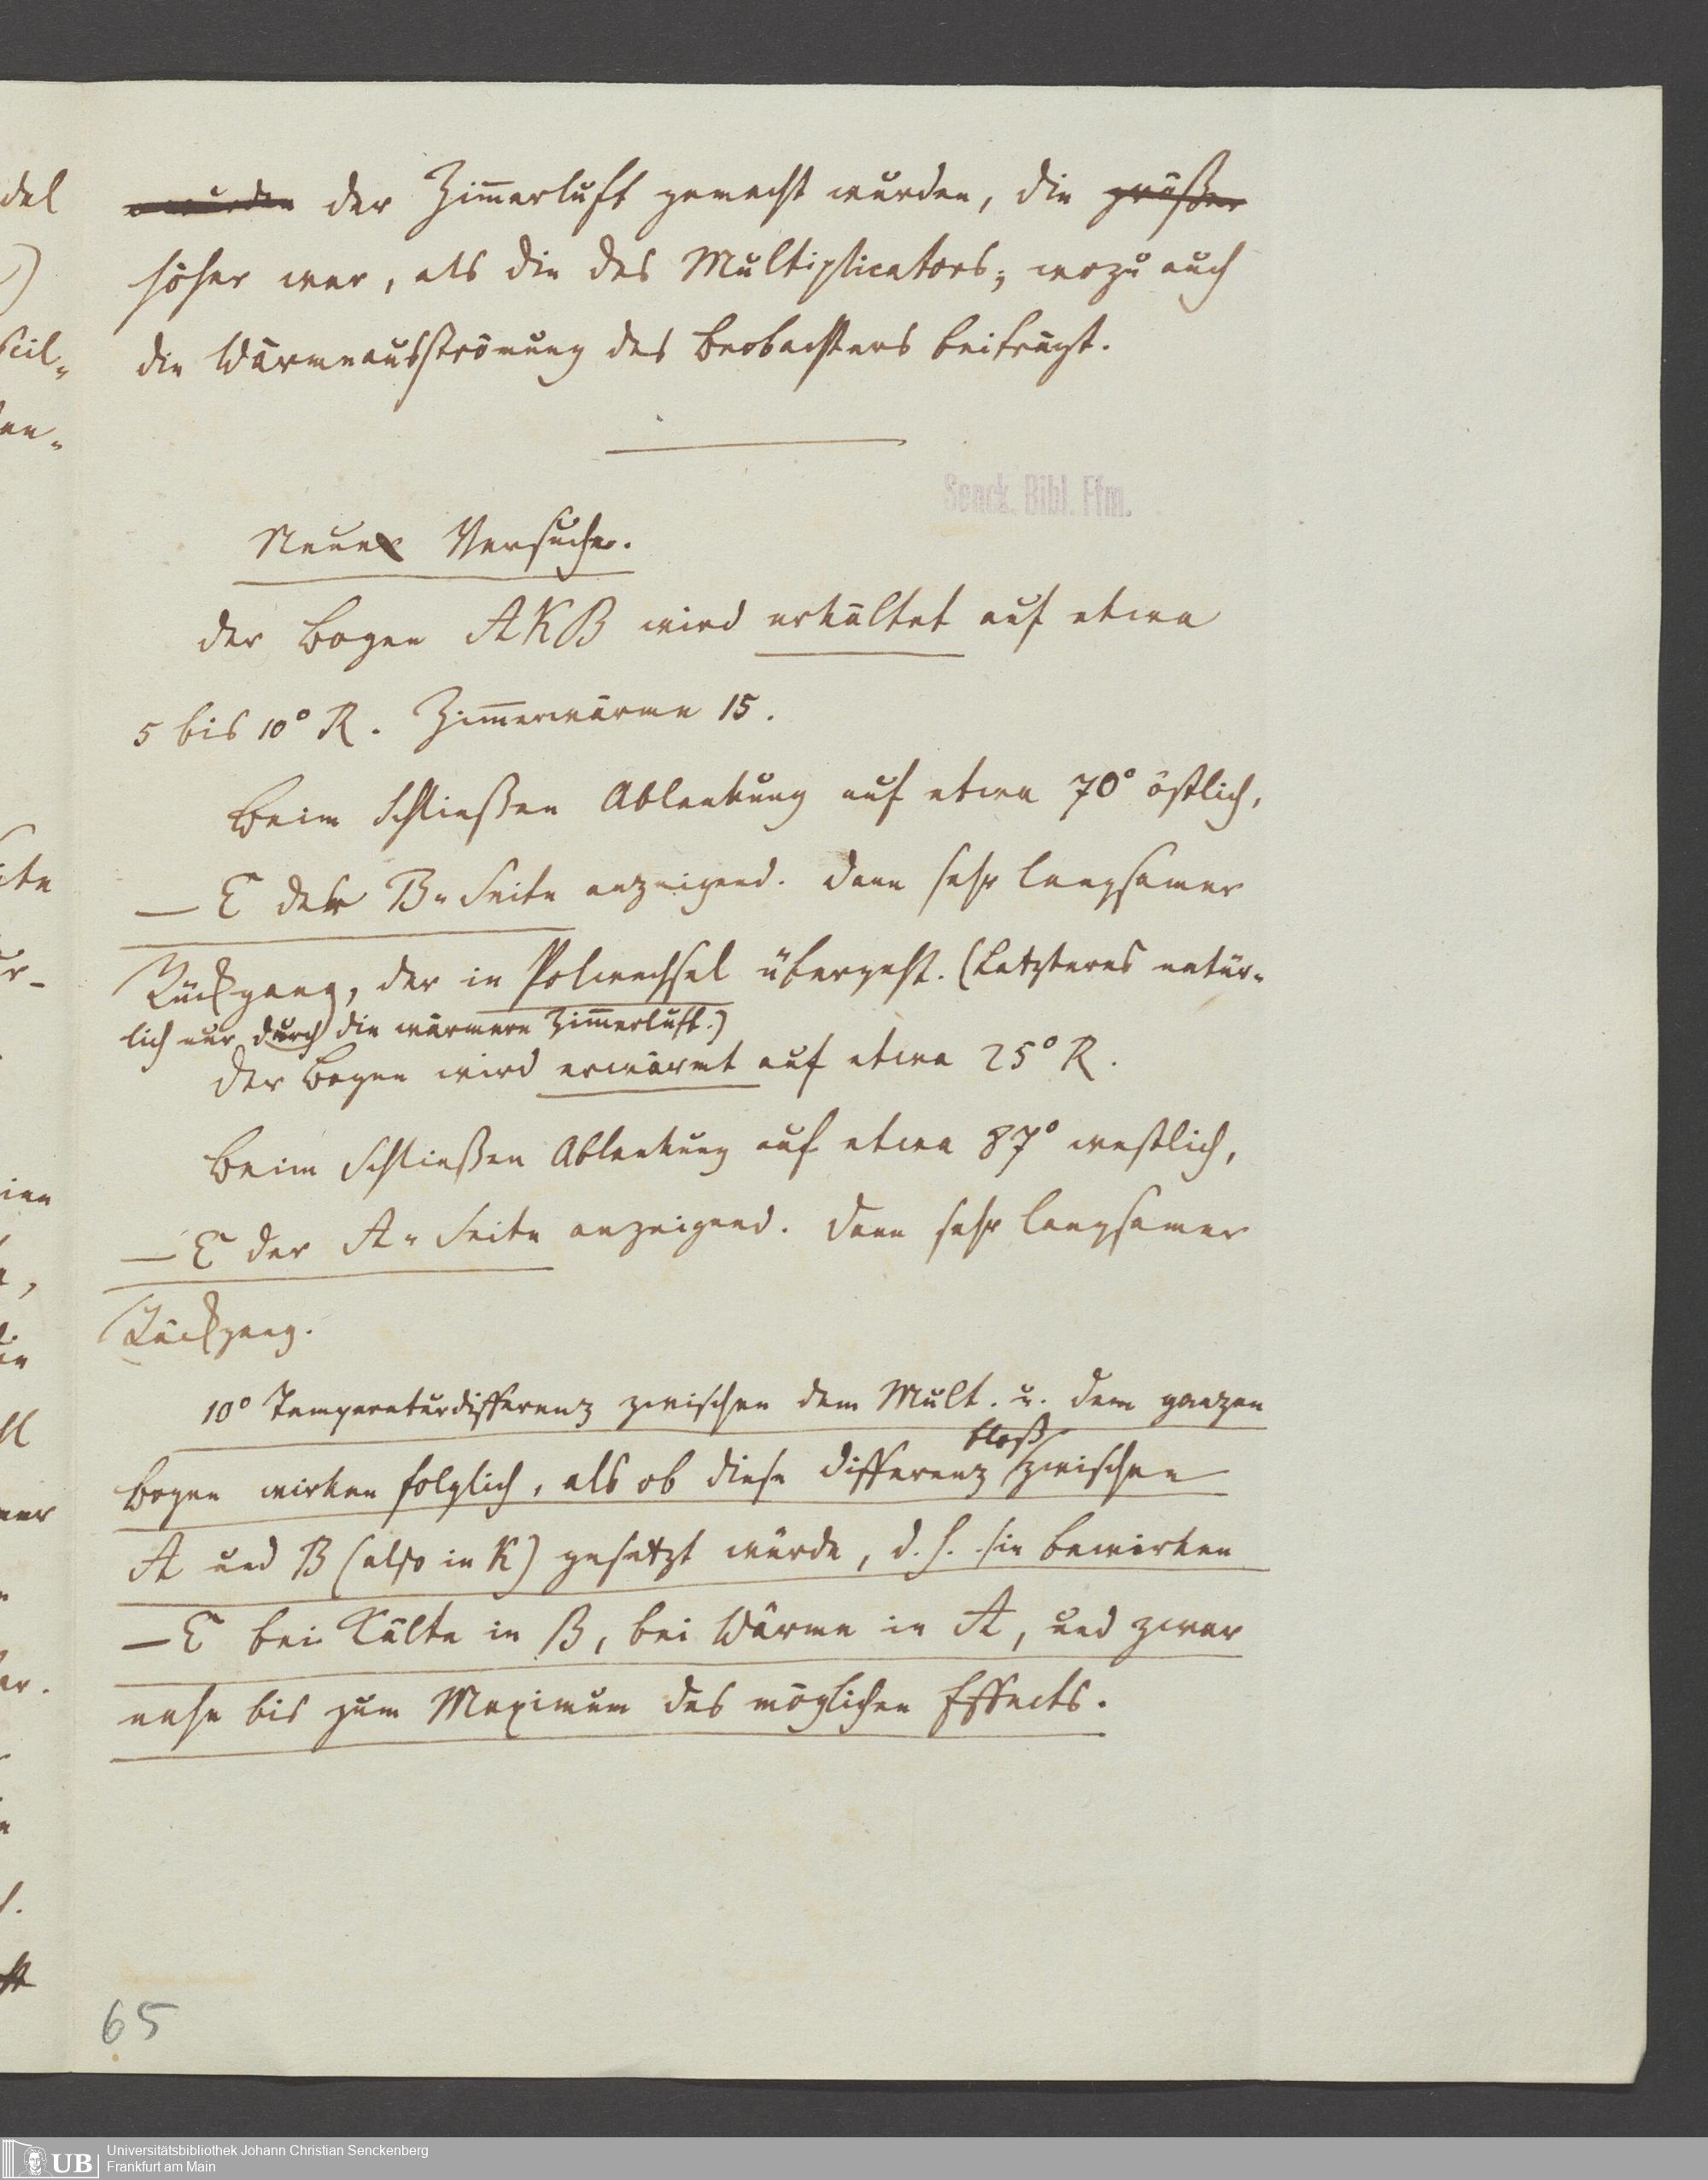 wurden der Zimmerluft gemacht wurden, die größer
höher war, als die des Multiplicators; wozu auch
die Wärmeausströmung des Beobachters beiträgt.
Senck. Bibl. Ffm.
Neue Versuche.
Der Bogen AKB wird erkältet auf etwa
5 bis 10° R. Zimmerwärme 15.
Beim Schließen Ablenkung auf etwa 70° östlich,
— E der B-Seite anzeigend. Dann sehr langsamer
Rückgang, der in Polwechsel übergeht. (Letzteres natür-
lich nur durch die wärmere Zimmerluft.)
Der Bogen wird erwärmt auf etwa 25° R.
Beim Schließen Ablenkung auf etwa 87° westlich,
— E der A-Seite anzeigend. Dann sehr langsamer
Rückgang.
10° Temperaturdifferenz zwischen dem Mult. u. dem ganzen
bloß
Bogen wirken folglich, als ob diese Differenz zwischen
A und B (also in K) gesetzt würde, d. h. sie bewirken
— E bei Kälte in B, bei Wärme in A, und zwar
nahe bis zum Maximum des möglichen Effects.
65
UB
Universitätsbibliothek Johann Christian Senckenberg
Frankfurt am Main